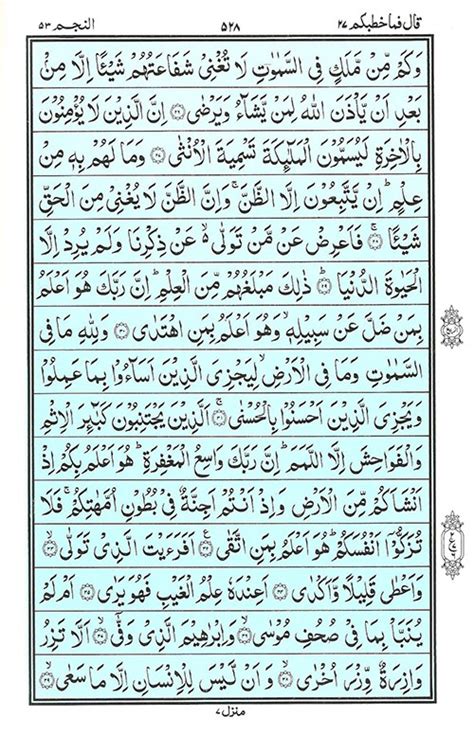 قال فماخطبكم ٢٧ ۵۲۸ النجم ۵۳
وَكَمْ مِّنْ مَّلَكٍ فِی السَّمٰوٰتِ لَا تُغْنِیْ شَفَاعَتُهُمْ شَیْـًٔا اِلَّا مِنْۢ
بَعْدِ اَنْ یَّاْذَنَ اللّٰهُ لِمَنْ یَّشَآءُ وَیَرْضٰی ۝۲۶ اِنَّ الَّذِیْنَ لَا یُؤْمِنُوْنَ
بِالْاٰخِرَةِ لَیُسَمُّوْنَ الْمَلٰٓىِٕكَةَ تَسْمِیَةَ الْاُنْثٰی ۝۲۷ وَمَا لَهُمْ بِهٖ مِنْ
عِلْمٍ ؕ اِنْ یَّتَّبِعُوْنَ اِلَّا الظَّنَّ ۚ وَاِنَّ الظَّنَّ لَا یُغْنِیْ مِنَ الْحَقِّ
شَیْـًٔا ۝۲۸ فَاَعْرِضْ عَنْ مَّنْ تَوَلّٰی ۙ۬ عَنْ ذِكْرِنَا وَلَمْ یُرِدْ اِلَّا
الْحَیٰوةَ الدُّنْیَا ۝۲۹ ؕ ذٰلِكَ مَبْلَغُهُمْ مِّنَ الْعِلْمِ ؕ اِنَّ رَبَّكَ هُوَ اَعْلَمُ
بِمَنْ ضَلَّ عَنْ سَبِیْلِهٖ ۙ وَهُوَ اَعْلَمُ بِمَنِ اهْتَدٰی ۝۳۰ وَلِلّٰهِ مَا فِی
السَّمٰوٰتِ وَمَا فِی الْاَرْضِ ۙ لِیَجْزِیَ الَّذِیْنَ اَسَآءُوْا بِمَا عَمِلُوْا
وَیَجْزِیَ الَّذِیْنَ اَحْسَنُوْا بِالْحُسْنٰی ۝۳۱ ۚ اَلَّذِیْنَ یَجْتَنِبُوْنَ كَبٰٓىِٕرَ الْاِثْمِ
وَالْفَوَاحِشَ اِلَّا اللَّمَمَ ؕ اِنَّ رَبَّكَ وَاسِعُ الْمَغْفِرَةِ ؕ هُوَ اَعْلَمُ بِكُمْ اِذْ
اَنْشَاَكُمْ مِّنَ الْاَرْضِ وَاِذْ اَنْتُمْ اَجِنَّةٌ فِیْ بُطُوْنِ اُمَّهٰتِكُمْ ۚ فَلَا
تُزَكُّوْۤا اَنْفُسَكُمْ ؕ هُوَ اَعْلَمُ بِمَنِ اتَّقٰی ۝۳۲ اَفَرَءَیْتَ الَّذِیْ تَوَلّٰی ۝۳۳ ۙ
وَاَعْطٰی قَلِیْلًا وَّاَكْدٰی ۝۳۴ اَعِنْدَهٗ عِلْمُ الْغَیْبِ فَهُوَ یَرٰی ۝۳۵ اَمْ لَمْ
یُنَبَّاْ بِمَا فِیْ صُحُفِ مُوْسٰی ۝۳۶ ۙ وَاِبْرٰهِیْمَ الَّذِیْ وَفّٰۤی ۝۳۷ ۙ اَلَّا تَزِرُ
وَازِرَةٌ وِّزْرَ اُخْرٰی ۝۳۸ ۙ وَاَنْ لَّیْسَ لِلْاِنْسَانِ اِلَّا مَا سَعٰی ۝۳۹ ۙ
منزل ۷